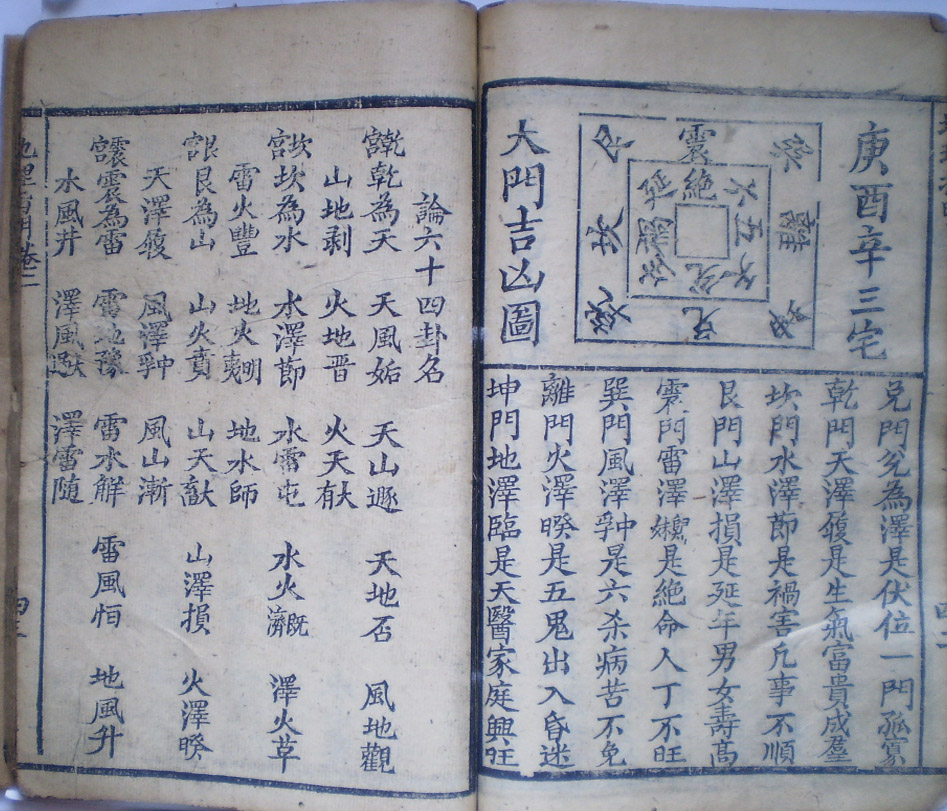 庚酉辛三宅
震
離
兑
坤
絕
五
六
延
大門吉凶圖
兑門兑為澤是伏位一門孤寡
乾門天澤履是生氣富貴成羣
坎門水澤節是禍害凡事不順
艮門山澤損是延年男女壽高
震門雷澤歸妹是絕命人丁不旺
巽門風澤中孚是六杀病苦不免
離門火澤暌是五鬼出入昏迷
坤門地澤臨是天醫家庭興旺
論六十四卦名
乾宮乾為天 天風姤 天山遯 天地否 風地觀
山地剥 火地晋 火天大有
坎宮坎為水 水澤節 水雷屯 水火既濟 澤火革
雷火豐 地火明夷 地水師
艮宮艮為山 山火賁 山天大畜 山澤損 火澤暌
天澤履 風澤中孚 風山漸
震宮震為雷 雷地豫 雷水解 雷風恒 地風升
水風井 澤風大過 澤雷随
地理 卷二